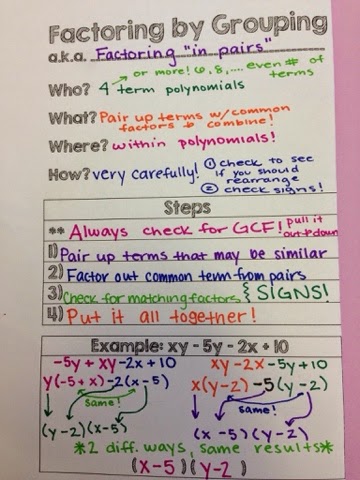 Factoring by Grouping
a.k.a. Factoring "in pairs"
or more! 6, 8, .... even # of
terms
Who? 4 term polynomials
What? Pair up terms w/common
factors & combine!
Where? within polynomials!
How? very carefully! ① check to see
if you should
rearrange
② check signs!
Steps
** Always check for GCF! pull it
out + down
1) Pair up terms that may be similar
2) Factor out common term from pairs
3) Check for matching factors { SIGNS!
4) Put it all together!
Example: xy - 5y - 2x + 10
-5y + xy -2x + 10
y(-5 + x) -2(x-5)
same!
(y-2)(x-5)
xy -2x -5y +10
x(y-2) -5(y-2)
same!
(x-5)(y-2)
*2 diff. ways, same results*
(x-5)(y-2)